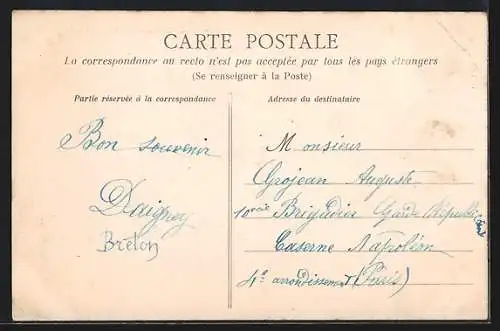 CARTE POSTALE
La correspondance au recto n'est pas acceptée par tous les pays étrangers
(Se renseigner à la Poste)
Partie réservée à la correspondance
Adresse du destinataire
Bon souvenir
Daigney
Breton
Monsieur
Grojean Auguste
Brigadier Garde Républi
Caserne Napoléon
4e arrondissement (Paris)